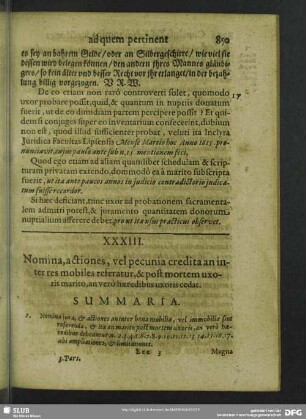 ad quem pertinent 850
es sey an bahrem Gelde/oder an Silbergeschirre/wie viel sie
dessen wird belegen können/den andern ihres Mannes gläubi-
gern/so kein älter und besser Recht vor ihr erlanget/in der bezah-
lung billig vorgezogen. V. R. W.
De eo etiam non raro controverti solet, quomodo 17
uxor probare possit, quid, & quantum in nuptiis donatum
fuerit, ut ejus dimidiam partem percipere possit? Et qui-
dem si conjuges super eo inventarium confecerint, dubium
non est, quod illud sufficienter probat, veluti ita inclyta
Juridica Facultas Lipsiensis Mense Martio hoc Anno 1615. pro-
nunciavit, cujus paulò ante sub n. 15. mentionem feci,
Quod ego etiam ad aliam quamlibet schedulam & scriptu-
ram privatam extendo, dummodò ea à marito subscripta
fuerit, ut ita ante paucos annos in judicio contradictorio judica-
tum fuisse recordor.
Si haec deficiant, tunc uxor ad probationem sacramenta-
lem admitti potest, & juramento quantitatem donorum
nuptialium asserere debet, prout ita usus practicus observet.
XXXIII.
Nomina, actiones, vel pecunia credita an in-
ter res mobiles referatur, & post mortem uxo-
ris marito, an verò haeredibus uxoris cedat.
SUMMARIA.
1. Nomina jura, & actiones an inter bona mobilia, vel immobilia sint
referenda, & an marito post mortem uxoris, an verò hae-
redibus debeantur n. 2. 3. 4. 5. 6. 7. 8. 9.
ubi ampliationes, & limitationes.
3. Pars. Eee 3 Magna
SLUB